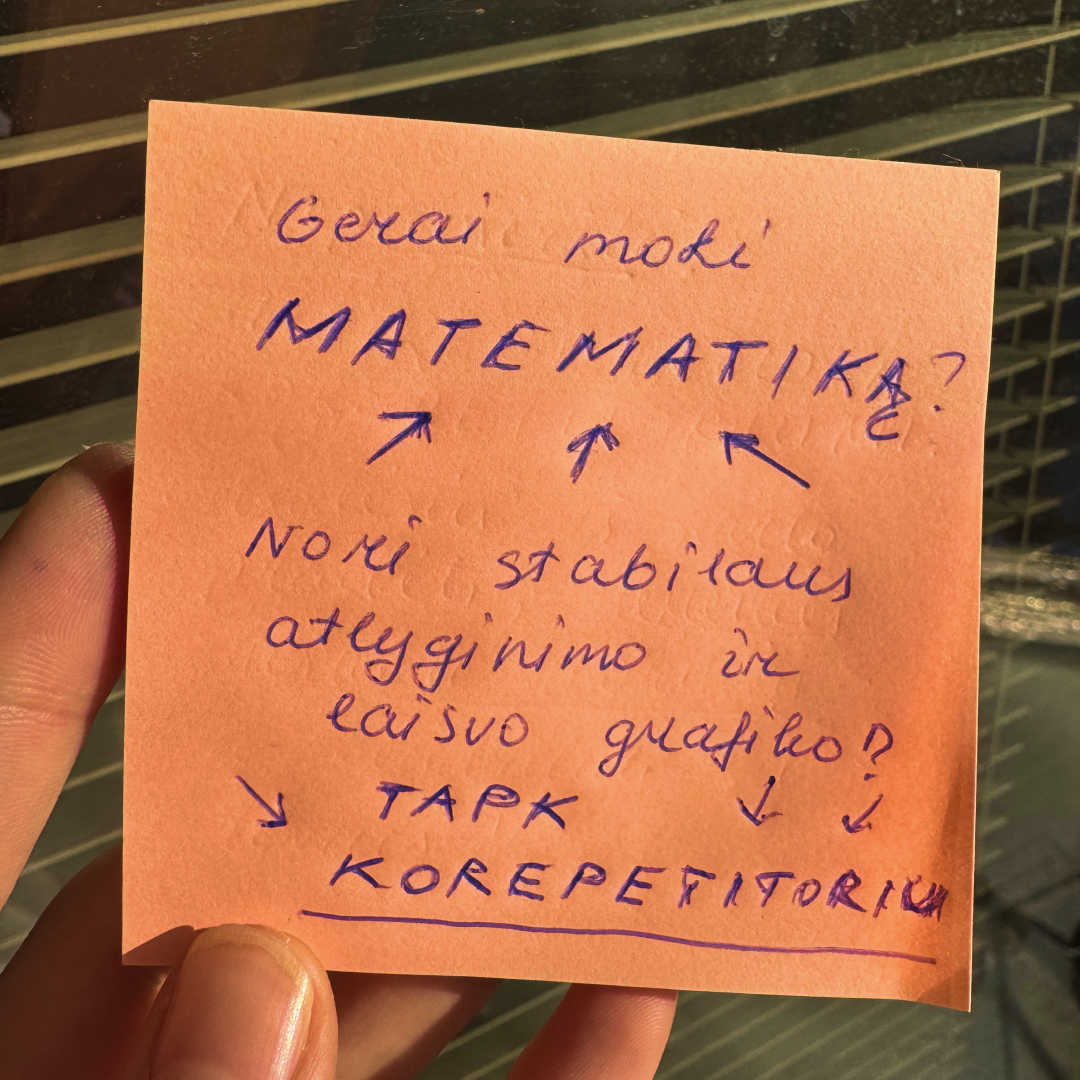 Gerai moki
MATEMATIKĄ?
Nori stabilaus
atlyginimo ir
laisvo grafiko?
TAPK
KOREPETITORIU